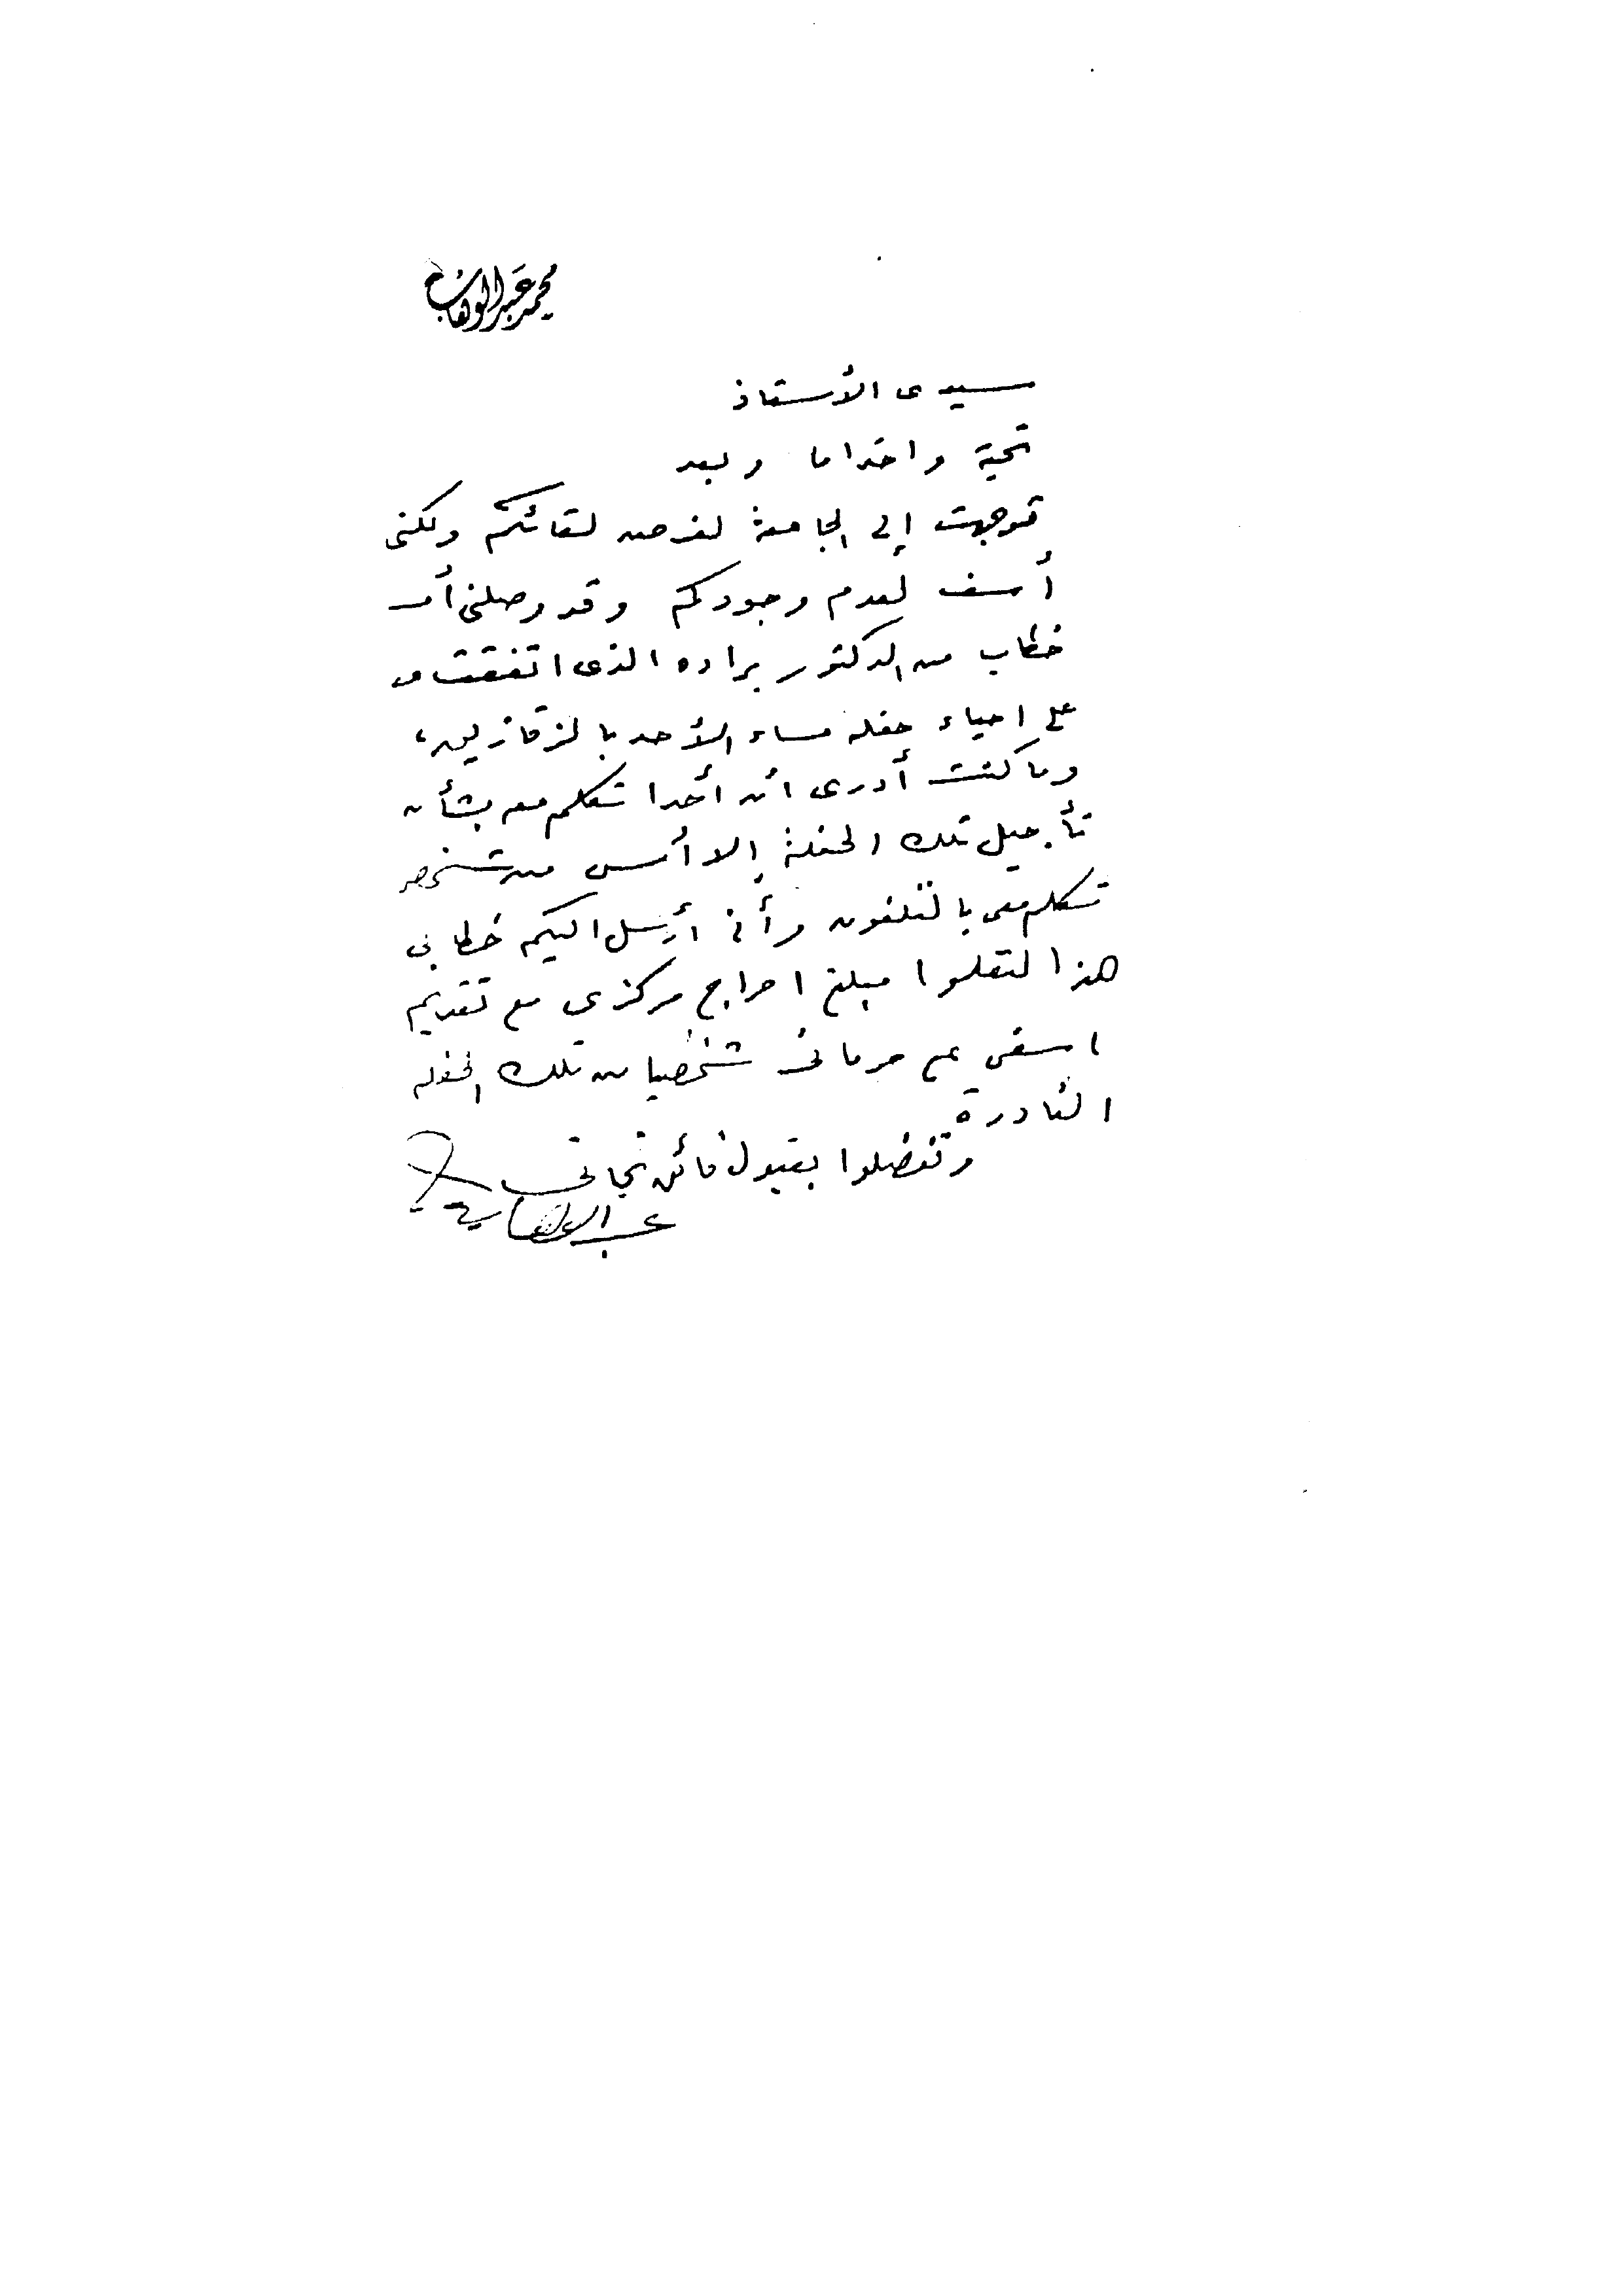 محمد عبد الوهاب
سيدى الأستاذ
تحية واحتراما وبعد
توجهت إلى الجامعة لغرض لقائكم ولكنى
أسف لعدم وجودكم وقد وصلنى أمس
خطاب من الدكتور براده الذى اتفقت معه
على احياء حفله مساء الأحد بالزقازيق،
وما كنت أدرى ان أحدا تكلم معه بشأن
تأجيل تلك الحفلة إلا أمس من شخص
تكلم معى بالتلفون وأنى أرسل اليكم خطابى
هذا لتعلموا مبلغ احراج مركزى مع تقديم
اسفى على حرمانى شخصيا من تلك الحفله
النادرة
وتفضلوا بقبول فائق تحياتى
عبد الوهاب